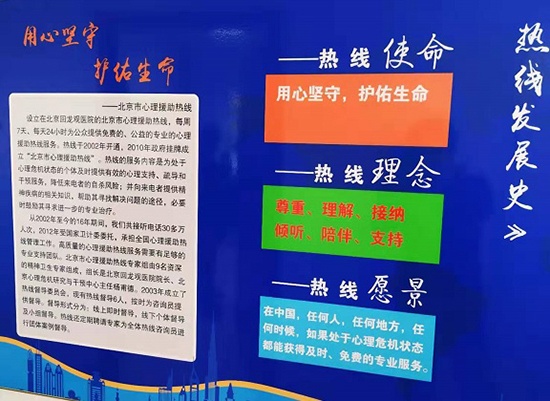 用心坚守
护佑生命
——北京市心理援助热线
设立在北京回龙观医院的北京市心理援助热线，每周
7天，每天24小时为公众提供免费的、公益的专业的心理
援助热线服务。热线于2002年开通，2010年政府挂牌成
立“北京市心理援助热线”。热线的服务内容是为处于
心理危机状态的个体及时提供有效的心理支持、疏导和
干预服务，降低来电者的自杀风险；并向来电者提供精
神疾病的相关知识，帮助其寻找解决问题的途径，必要
时鼓励其寻求进一步的专业治疗。
从2002年至今的16年期间，我们共接听电话30多万
人次，2012年受国家卫计委委托，承担全国心理援助热
线管理工作。高质量的心理援助热线服务需要有足够的
专业支持团队。北京市心理援助热线专家组由9名资深
的精神卫生专家组成，组长是北京回龙观医院院长、北
京心理危机研究与干预中心主任杨甫德。2003年成立了
热线督导委员会，现有热线督导6人，按时为咨询员提
供督导。督导形式分为：线上即时督导，线下个体督导
及小组督导。热线还定期聘请专家为全体热线咨询员进
行团体案例督导。
——热线 使命
用心坚守，护佑生命
——热线 理念
尊重、理解、接纳
倾听、陪伴、支持
——热线 愿景
在中国，任何人，任何地方，任
何时候，如果处于心理危机状态
都能获得及时、免费的专业服务。
热线发展史》